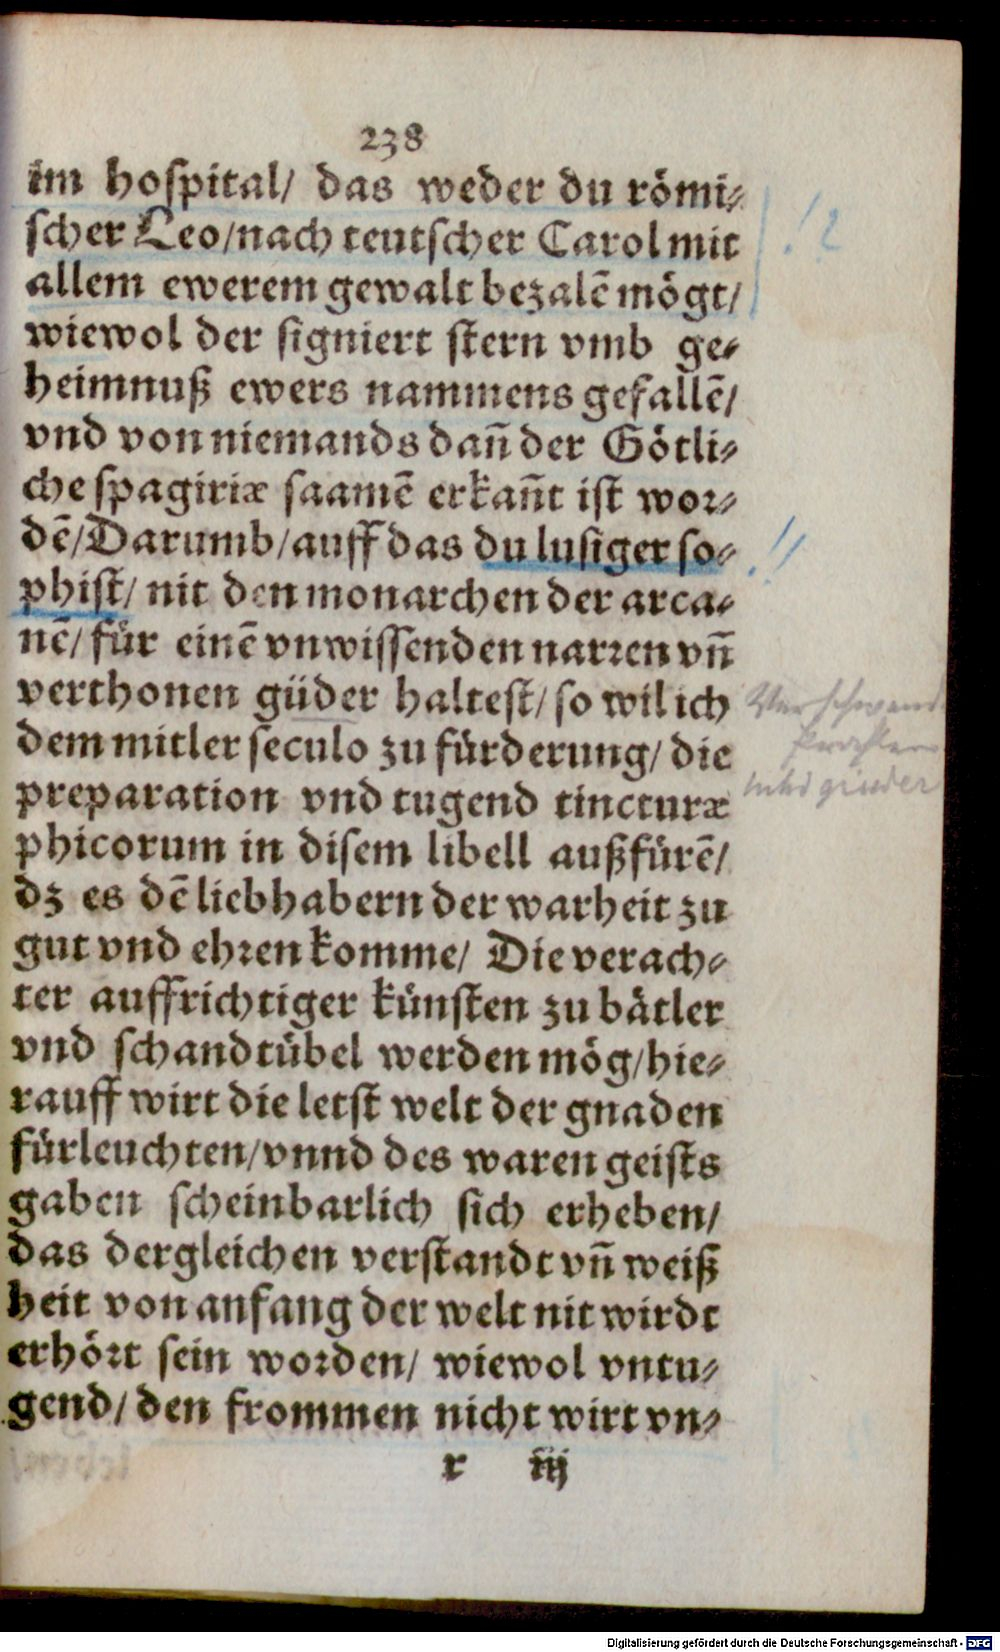 238
im hoſpital/ das weder du römi⸗
ſcher Leo/nach teutſcher Carol mit
allem ewerem gewalt bezalē mögt/
wiewol der ſigniert ſtern vmb ge⸗
heimnuß ewers nammens gefallē/
vnd von niemands dañ der Götli⸗
che ſpagiriæ ſaamē erkañt iſt wor⸗
dē/Darumb/auff das du luſiger ſo⸗
phiſt/ nit den monarchen der arca⸗
nē/für einē vnwiſſenden narren vñ
verthonen güder halteſt/ſo wil ich
dem mitler ſeculo zu fürderung/ die
preparation vnd tugend tincturæ
phicorum in diſem libell außfürē/
dz es dē liebhabern der warheit zu
gut vnd ehren komme/ Die verach⸗
ter auffrichtiger künſten zu bätler
vnd ſchandtübel werden mög/hie⸗
rauff wirt die letſt welt der gnaden
fürleuchten/vnnd des waren geiſts
gaben ſcheinbarlich ſich erheben/
das dergleichen verſtandt vñ weiß
heit von anfang der welt nit wirdt
erhört ſein worden/ wiewol vntu⸗
gend/den frommen nicht wirt vn⸗
r iij
! ?
!!
Digitalisierung gefördert durch die Deutsche Forschungsgemeinschaft - DFG